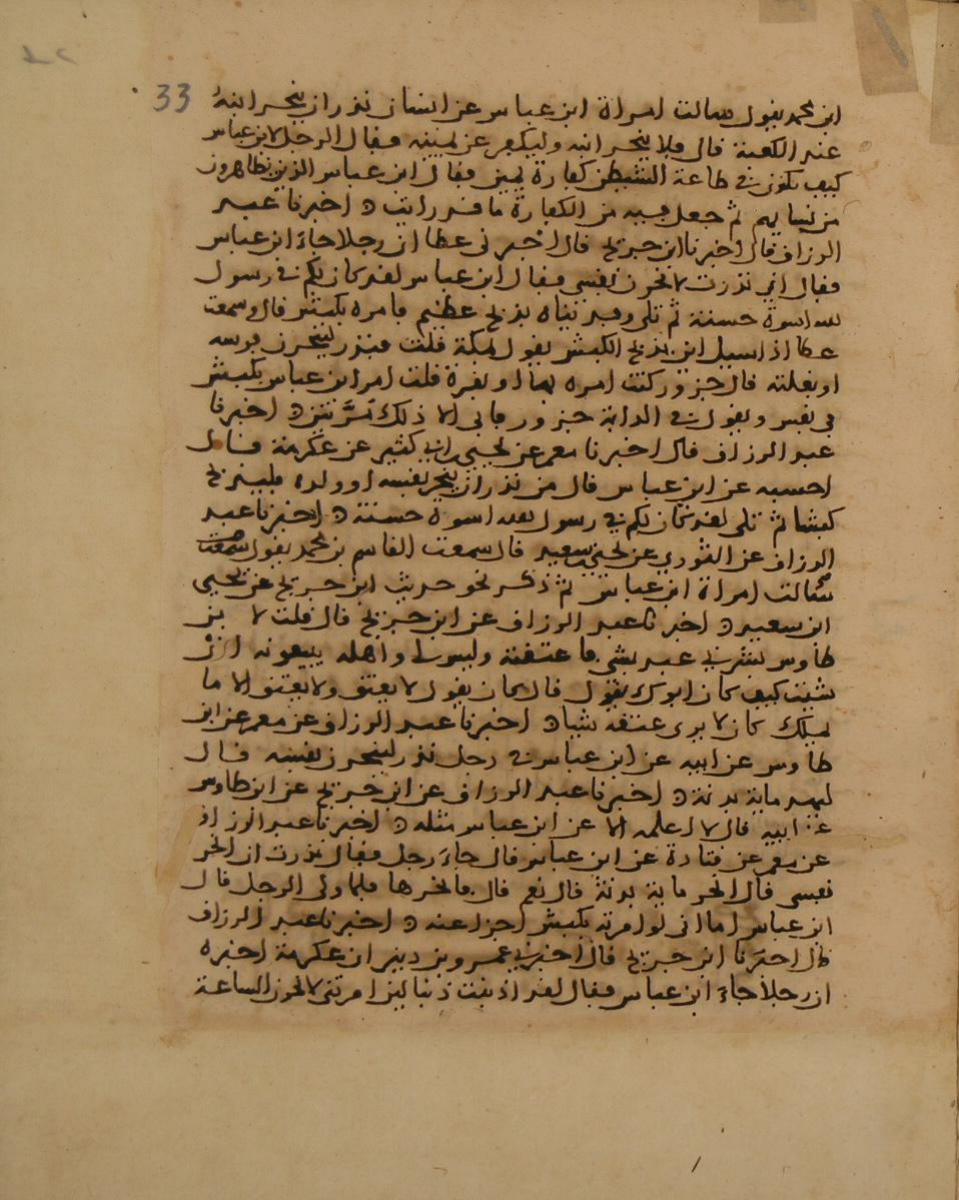 33
ابن محمد يقول سالت امراة ابن عباس عن انسان نذر ان ينحر ابنه
عند الكعبة قال فلا ينحر ابنه وليكفر عن يمينه فقال الرجل لابن عباس
كيف تكون في طاعة الشيطن كفارة يمين فقال ابن عباس الذين يظاهرون
من نسايهم ثم جعل فيه من الكفارة ما قد رايت ه اخبرنا عبد
الرزاق قال اخبرنا ابن جريج قال اخبرني عطا ان رجلا جاء ابن عباس
فقال اني نذرت لانحرن نفسي فقال ابن عباس لقد كان لكم في رسول
الله اسوة حسنة ثم تلى وفديناه بذبح عظيم فامره بكبش قال وسمعت
عطا اذ اسيل اين يذبح الكبش يقول بمكة قلت فنذر لينحرن فرسه
او بغلته قال جزور كنت امره بها او بقرة قلت امر ابن عباس بكبش
في نفس وتقول في الدابة جزور فابى الا ذلك مرتين ه اخبرنا
عبد الرزاق قال اخبرنا معمر عن يحيى بن ابي كثير عن عكرمة قال
احسبه عن ابن عباس قال من نذر ان ينحر نفسه او ولده فليذبح
كبشا ثم تلى لقد كان لكم في رسول الله اسوة حسنة ه اخبرنا عبد
الرزاق عن الثوري عن يحيى بن سعيد قال سمعت القاسم بن محمد يقول سمعت
سالت امراة ابن عباس ثم ذكر نحو حديث ابن جريج عن يحيى
ابن سعيد ه اخبرنا عبد الرزاق عن ابن جريج قال قلت لابن
طاوس عبد بشي ما عتقته وليوسط واهله يبيعونه ان
شيت كيف كان ابوك يقول قال كان يقول لا يعتق ولا يعتق الا ما
يملك كان لا يرى عتقه شيا ه اخبرنا عبد الرزاق عن معمر عن ابن
طاوس عن ابيه عن ابن عباس في رجل نذر لينحرن نفسه قال
ليهد ماية بدنة ه اخبرنا عبد الرزاق عن ابن جريج عن ابن طاوس
عن ابيه قال لا اعلمه الا عن ابن عباس مثله ه اخبرنا عبد الرزاق
عن معمر عن قتادة عن ابن عباس قال جاء رجل فقال نذرت ان انحر
نفسي قال انحر ماية بدنة قال نعم قال فانحرها فلما ولى الرجل قال
ابن عباس اما اني لو امرته بكبش اجزا عنه ه اخبرنا عبد الرزاق
قال اخبرنا ابن جريج قال اخبرني عمرو بن دينر ان عكرمة اخبره
ان رجلا جاء ابن عباس فقال لقد اذنبت ذنبا لين امرتني لانحرن الساعة